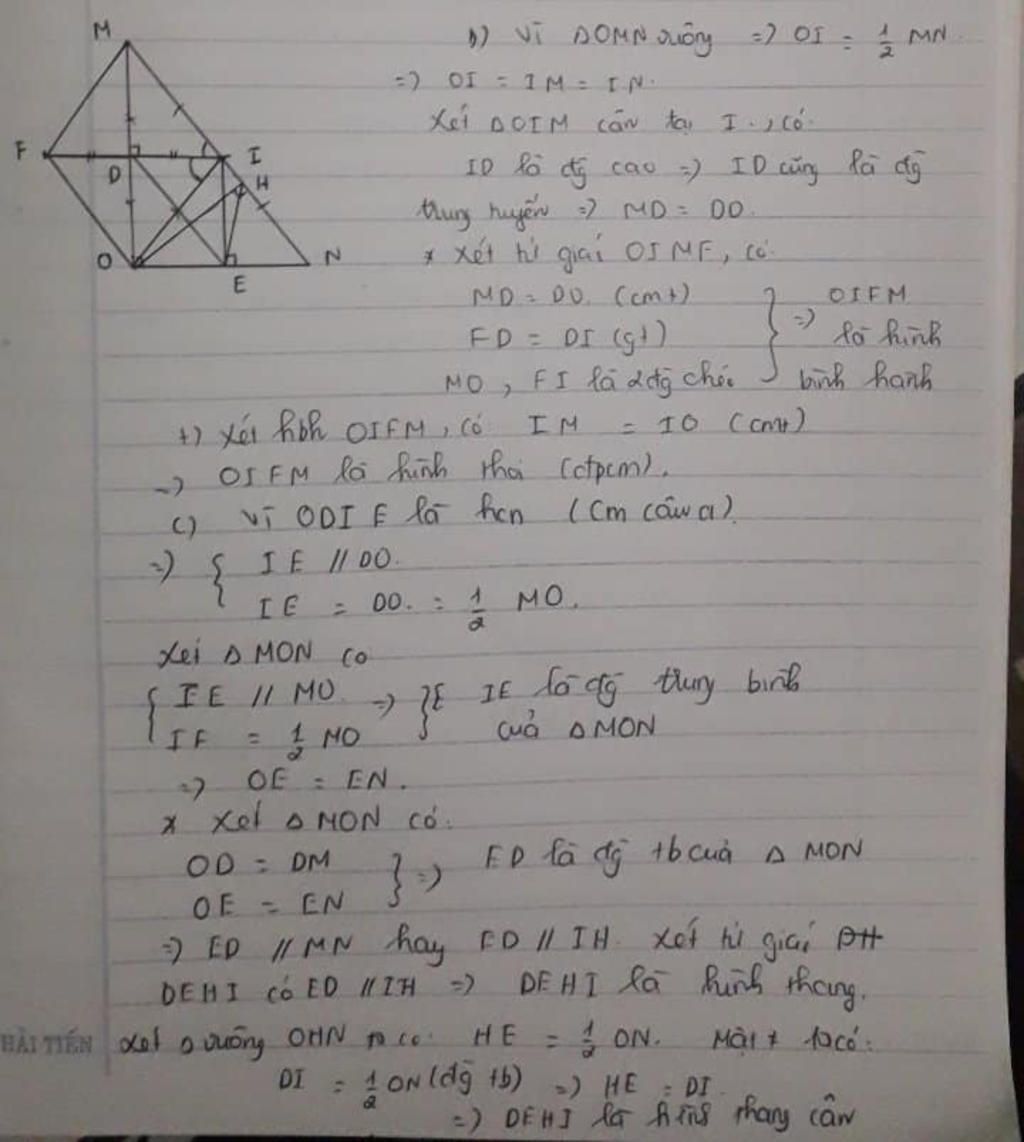 M
F
D
I
H
O
E
N
b) Vì ΔOMN vuông => OI = 1/2 MN.
=> OI = IM = IN.
Xét ΔOIM cân tại I, có
ID là đg cao => ID cũng là đg
trung tuyến => MD = DO.
* Xét tứ giác OIMF, có
MD = DO (cmt)
FD = DI (gt)
MO, FI là 2 đg chéo
} => OIFM
là hình
bình hành
+) Xét hbh OIFM, có IM = IO (cmt)
=> OIFM là hình thoi (đpcm).
c) Vì ODIE là hcn (Cm câu a)
=> { IE // DO.
IE = DO. = 1/2 MO.
Xét Δ MON có
{ IE // MO => } IE là đg trung bình
IE = 1/2 MO của ΔMON
=> OE = EN.
* Xét Δ MON có:
OD = DM } => ED là đg tb của Δ MON
OE = EN
=> ED // MN hay ED // IH. Xét tứ giác
DEHI có ED // IH => DEHI là hình thang.
HẢI TIẾN
Xét Δ vuông OHN có HE = 1/2 ON. Mặt ≠ ta có:
DI = 1/2 ON (đg tb) => HE = DI
=> DEHI là hình thang cân